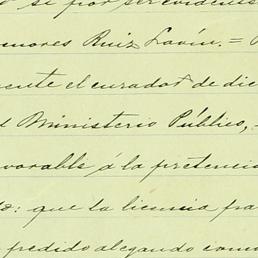 se por ser evidente
menores Ruiz Lavin. =
ente el curador de dic
l Ministerio Público, =
vorable á la pretenció
do: que la licencia fra
predido alegando como